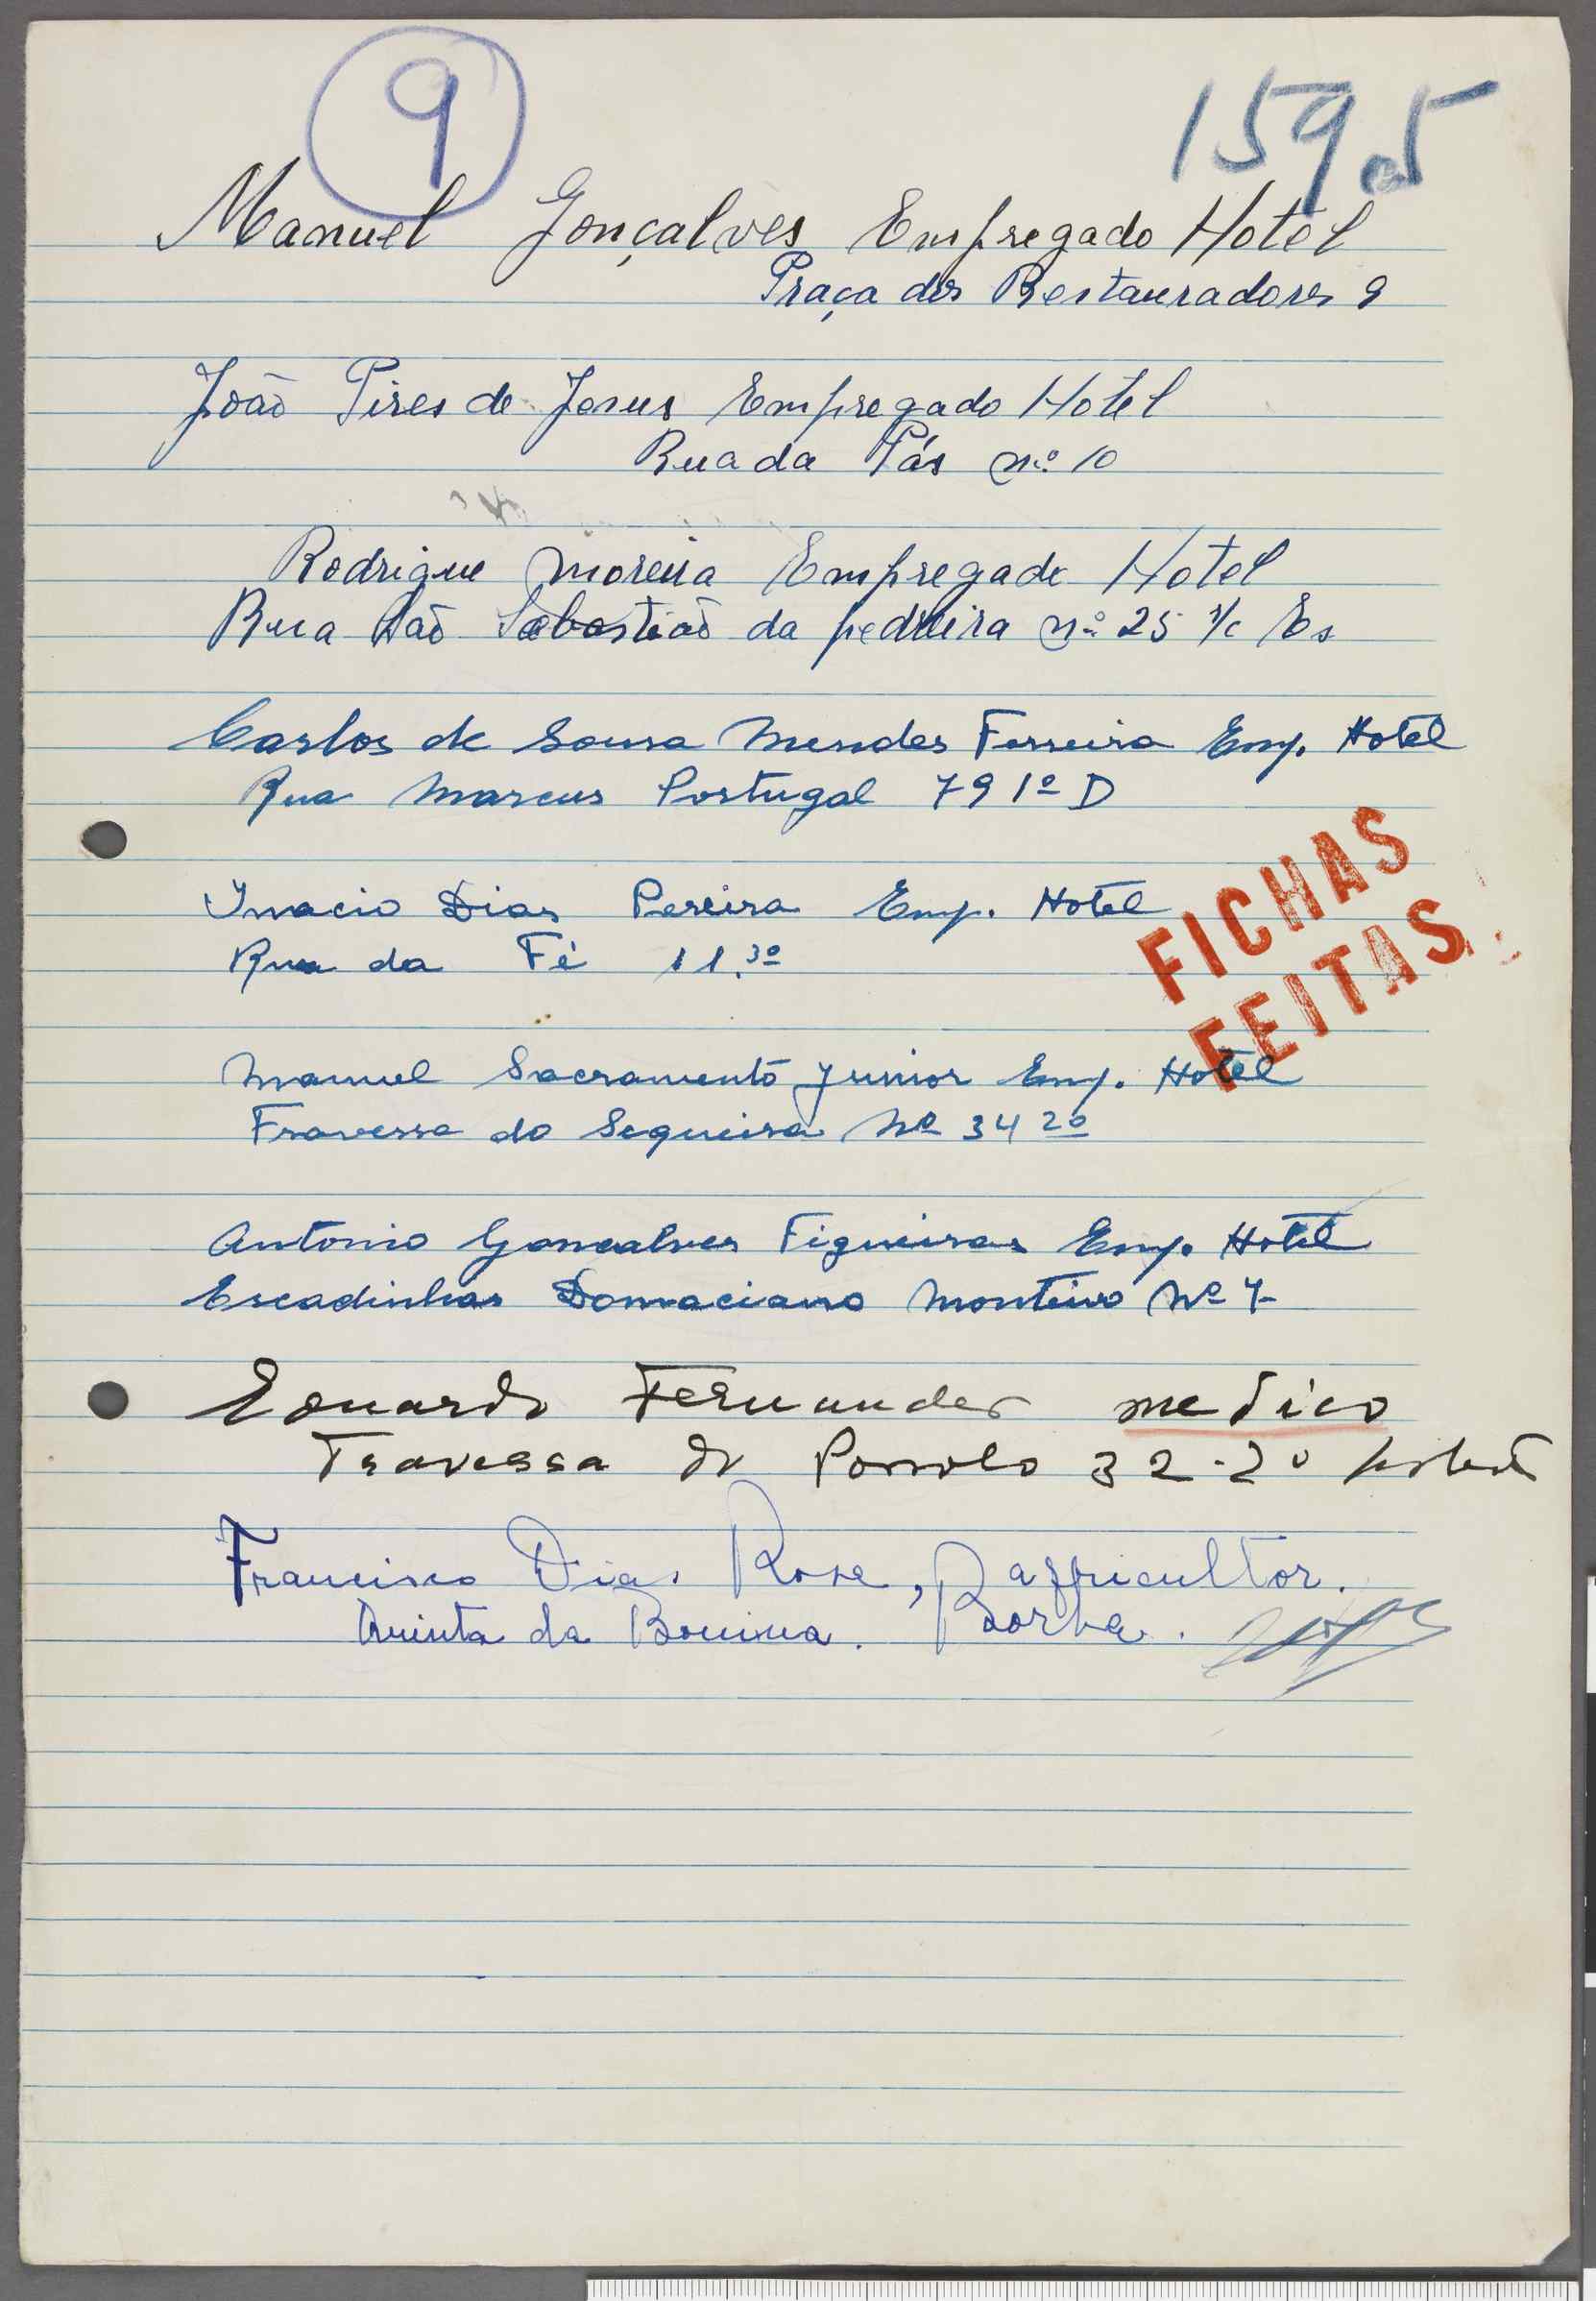 9
159
Manuel Gonçalves Empregado Hotel
Praça dos Restauradores 9
João Pires de Jesus Empregado Hotel
Rua da Pás nº 10
Rodrigue Moreira Empregado Hotel
Rua São Sebastião da pedreira nº 25 r/c Es
Carlos de Sousa Mendes Ferreira Emp. Hotel
Rua Marcus Portugal 79 1º D
Inacio Dias Pereira Emp. Hotel
Rua da Fé 11.3º
FICHAS
FEITAS
Manuel Sacramento Junior Emp. Hotel
Travessa do Sequeira Nº 34 2º
Antonio Goncalves Figueiras Emp. Hotel
Escadinhas Domaciano Monteiro Nº 7
Eduardo Fernandes medico
Travessa do Possolo 32-2º
Francisco Dias Rosa, agricultor.
Quinta da Borba.